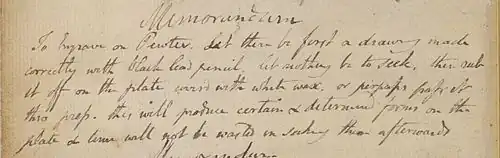 Memorandum
To Engrave on Pewter. Let there be first a drawing made
correctly with black lead pencil, let nothing be to seek, then rub
it off on the plate coverd with white wax, or perhaps pass it
thro press. this will produce certain & determind forms on the
plate & time will not be wasted in seeking them afterwards